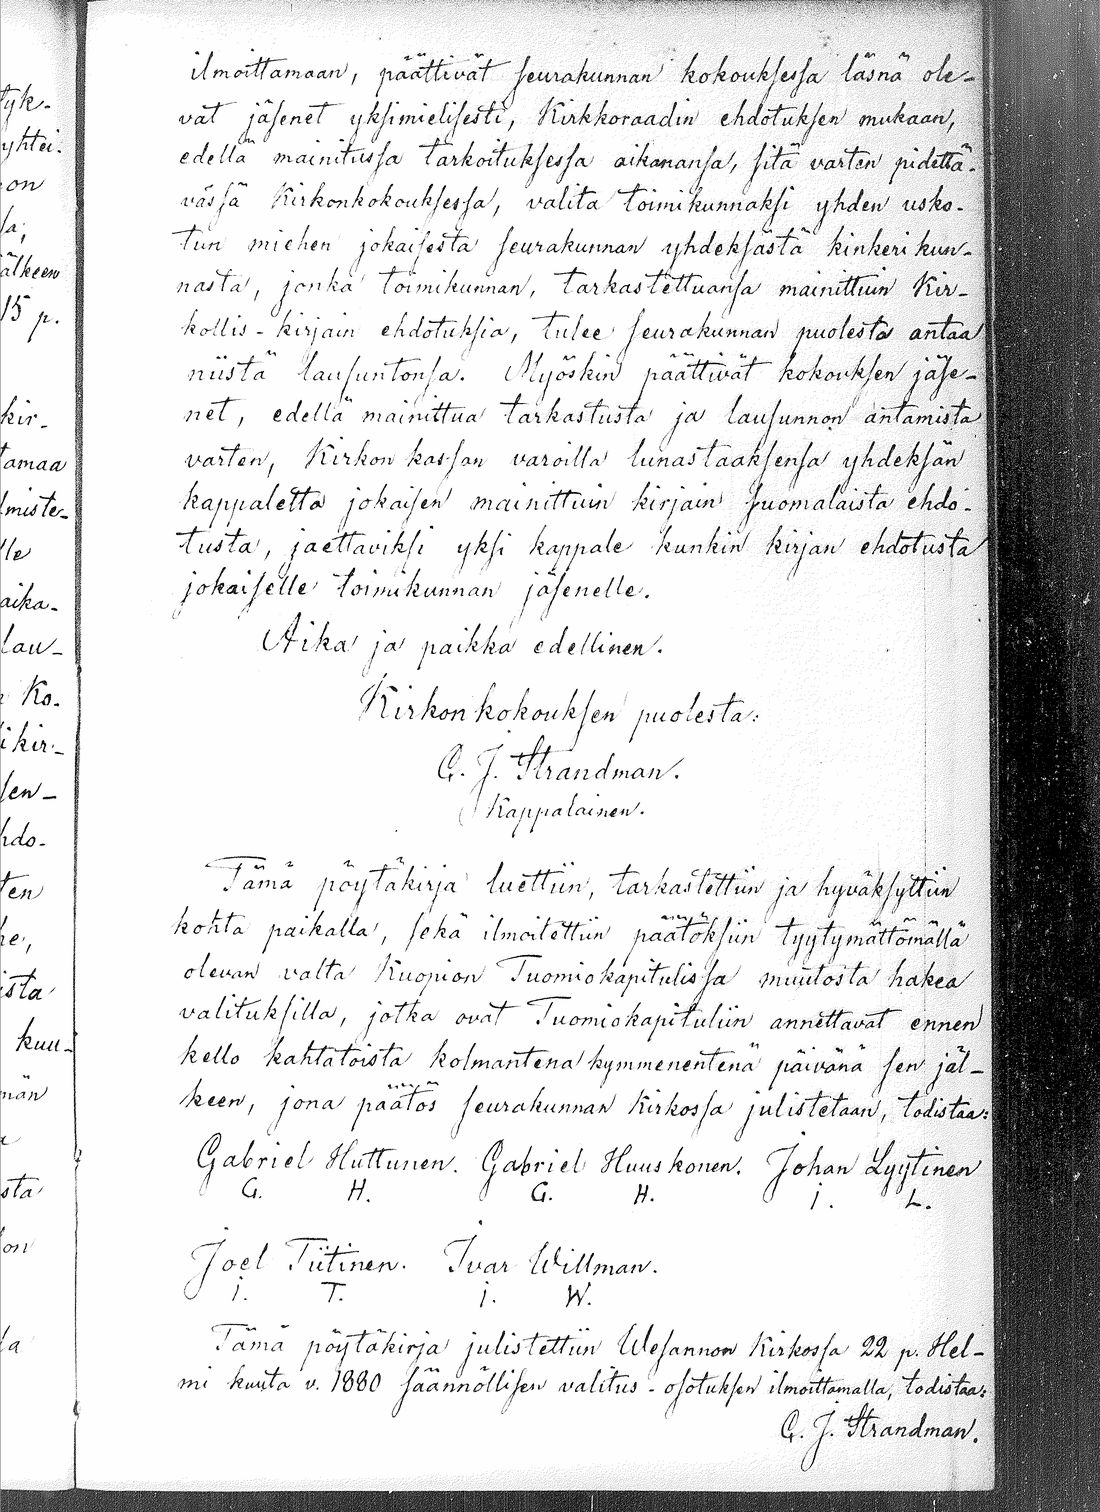 ilmoittamaan, päättivät seurakunnan kokouksessa läsnä ole-
vat jäsenet yksimielisesti, Kirkkoraadin ehdotuksen mukaan,
edellä mainitussa tarkoituksessa aikanansa, sitä varten pidettä-
vässä Kirkonkokouksessa, valita toimikunnaksi yhden usko-
tun miehen jokaisesta seurakunnan yhdeksästä kinkerikun-
nasta, jonka toimikunnan, tarkastettuansa mainittuin Kir-
kollis-kirjain ehdotuksia, tulee seurakunnan puolesta antaa
niistä lausuntonsa. Myöskin päättivät kokouksen jäse-
net, edellä mainittua tarkastusta ja lausunnon antamista
varten, Kirkon kassan varoilla lunastaaksensa yhdeksän
kappaletta jokaisen mainittuin kirjain suomalaista ehdo-
tusta, jaettaviksi yksi kappale kunkin kirjan ehdotusta
jokaiselle toimikunnan jäsenelle.
Aika ja paikka edellinen.
Kirkonkokouksen puolesta:
C. J. Strandman.
Kappalainen.
Tämä pöytäkirja luettiin, tarkastettiin ja hyväksyttiin
kohta paikalla, sekä ilmoitettiin päätöksiin tyytymättömällä
olevan valta Kuopion Tuomiokapitulissa muutosta hakea
valituksilla, jotka ovat Tuomiokapituliin annettavat ennen
kello kahtatoista kolmantenakymmenentenä päivänä sen jäl-
keen, jona päätös seurakunnan Kirkossa julistetaan, todistaa:
Gabriel Huttunen. Gabriel Huuskonen. Johan Lyytinen
G. H. G. H. J. L.
Joel Tiitinen. Ivar Willman.
J. T. I. W.
Tämä pöytäkirja julistettiin Wesannon Kirkossa 22 p. Hel-
mi kuuta v. 1880 säännöllisen valitus-osotuksen ilmoittamalla, todistaa:
C. J. Strandman.